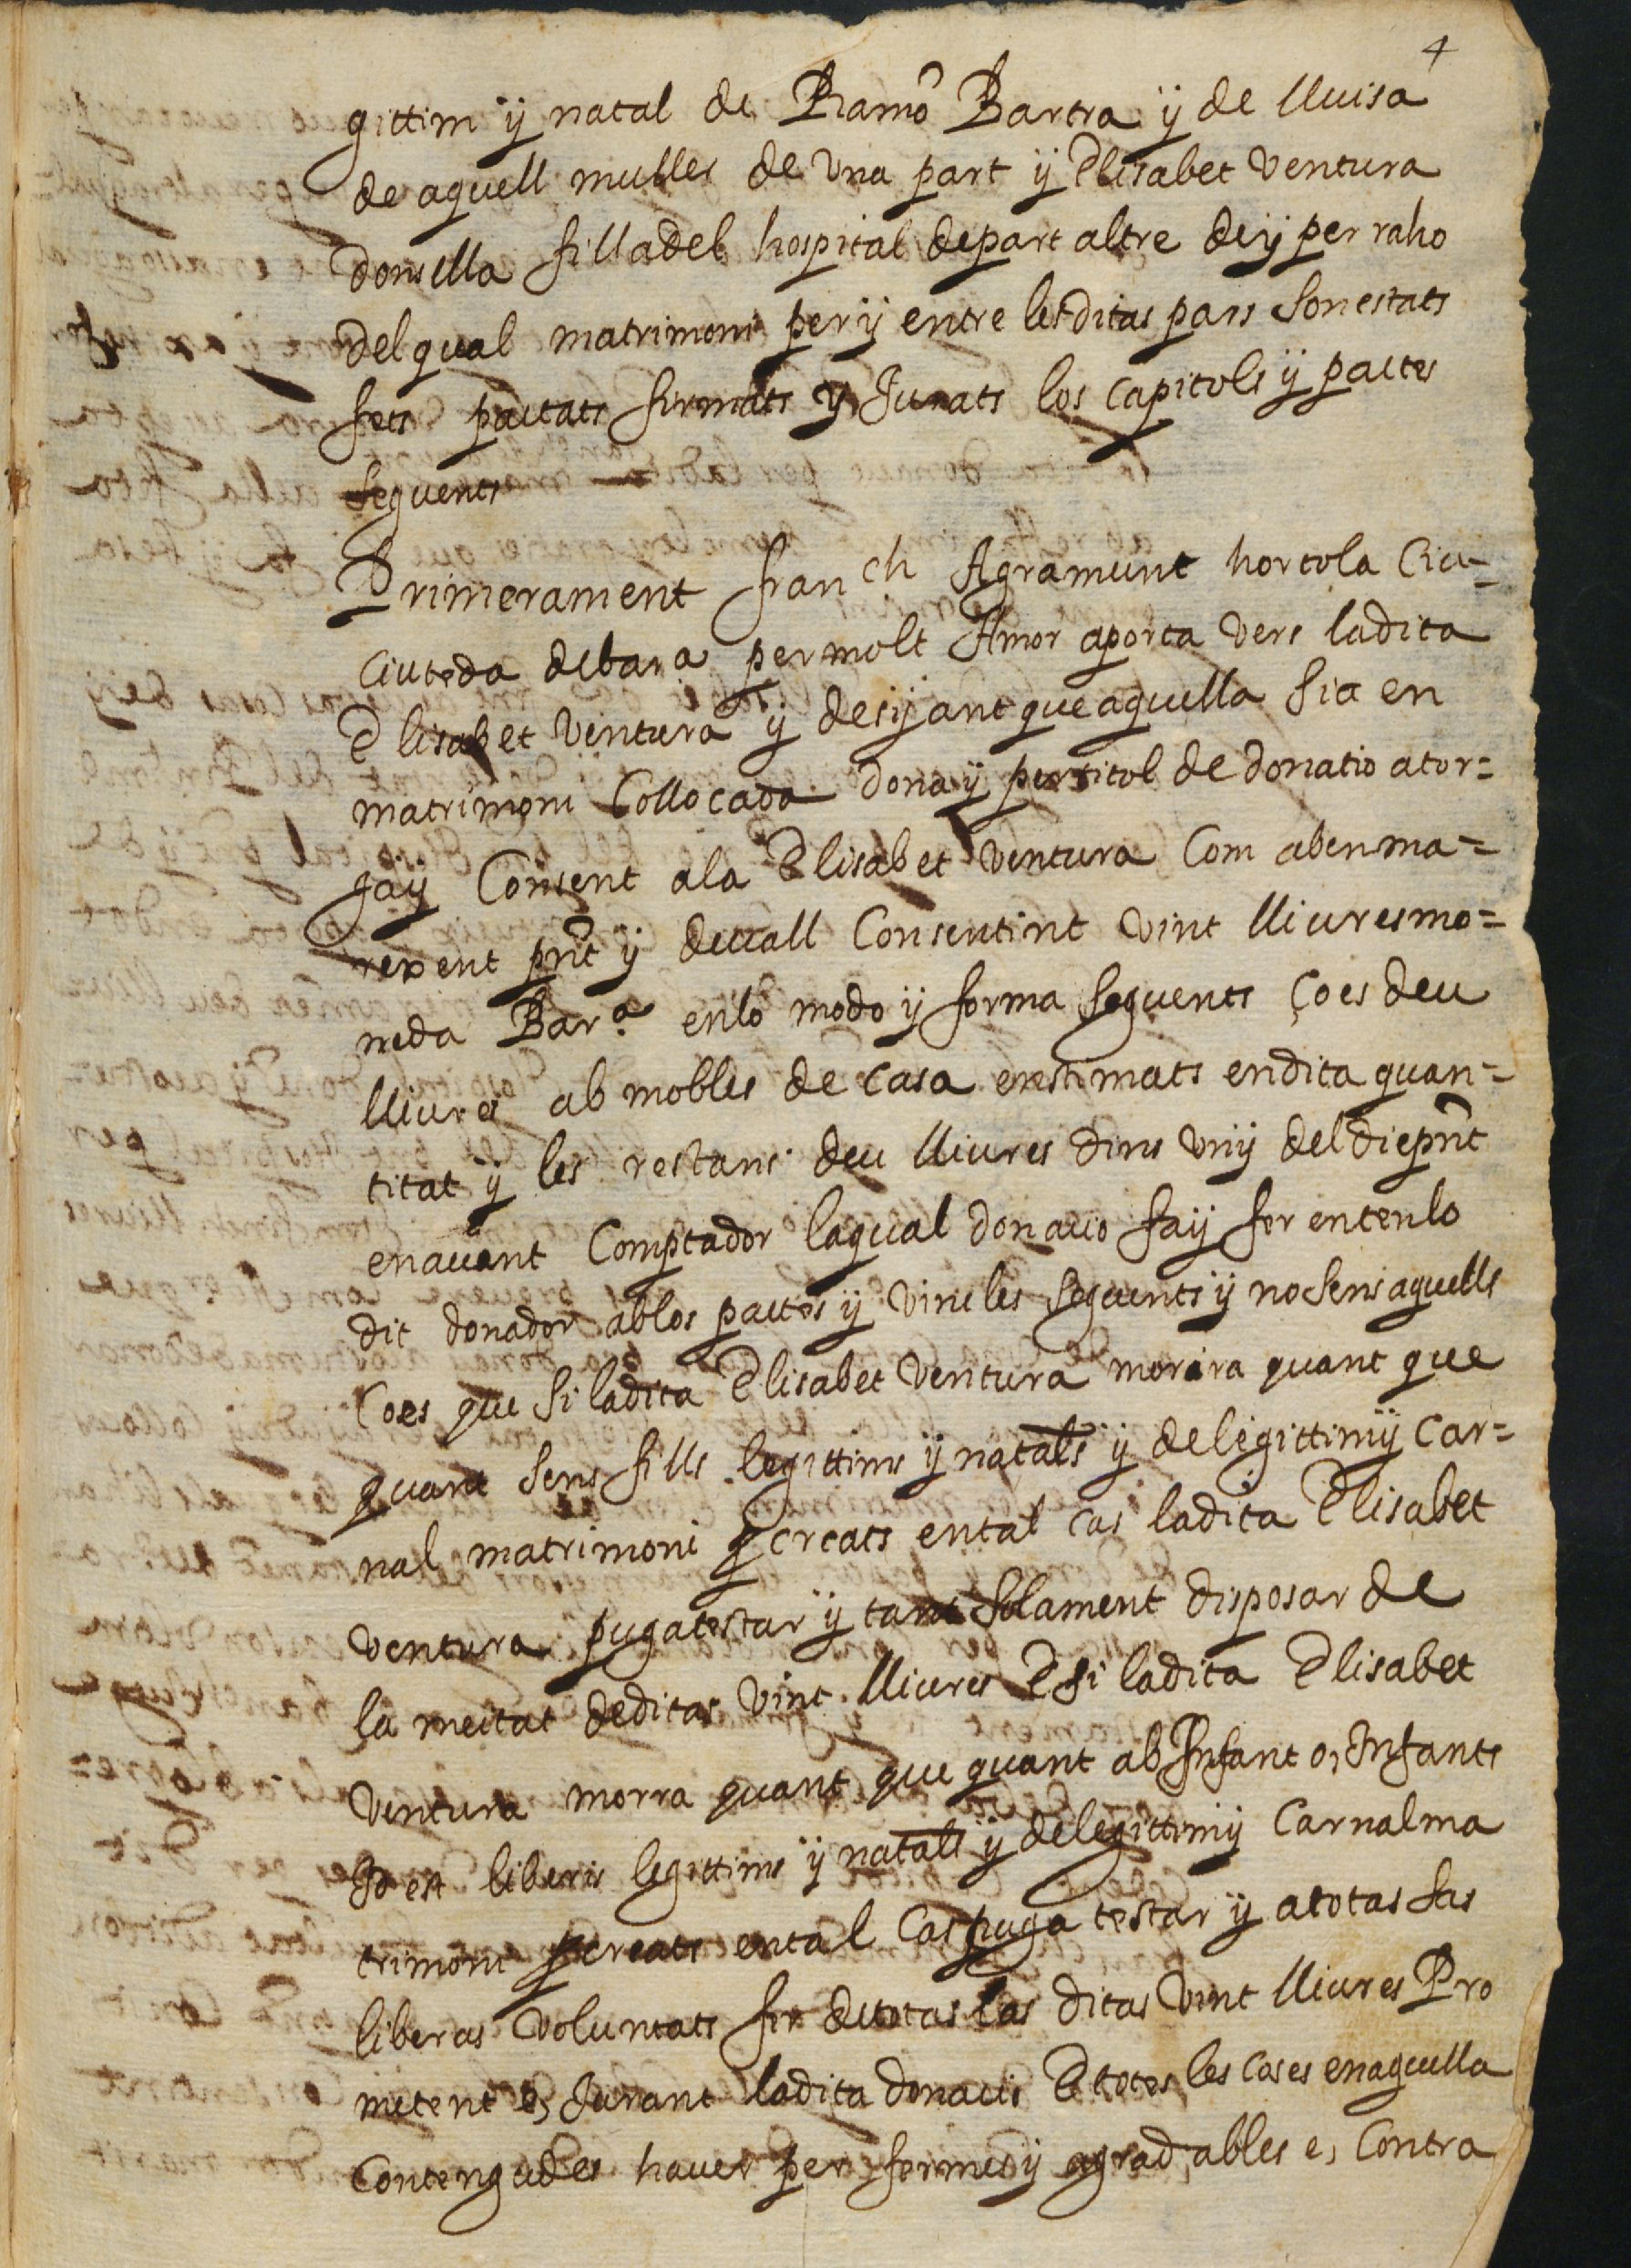 4
gittim ÿ natal de Ramõ Bartra ÿ de lluisa
de aquell muller de Una part ÿ Elisabet Ventura
donsella filladel hospital depart altre deÿ per raho
delqual matrimoni perÿ entre lesditas pars Sonestats
fets pactats firmats y Jurats los capitols ÿ pactes
seguents
Primerament franch Agramunt hortola Ciu-
Ciuteda debar.a permolt Amor aporta vers ladita
Elisabet Ventura ÿ desijant queaquella Sia en
matrimoni Collocada dona ÿ per titol de donatio ator=
gaÿ Consent ala Elisabet Ventura Com abenma=
rexent pnt̃ ÿ devall Consentint Vint lliuresmo=
neda Bar.a enlo modo ÿ forma seguents Ço es deu
lliures ab mobles de casa enstimats endita quan=
titat ÿ les restans deu lliures dins Vnÿ deldiepnt̃
enavant Comptador laqual donatio faÿ fer entenlo
dit donador ablos pactes ÿ vincles seguents ÿ nosensaquells
Coes que Si ladita Elisabet Ventura morira quant que
quant sens fills legittims ÿ natals ÿ delegittimÿ Car=
nal matrimoni pcreats ental cas ladita Elisabet
Ventura pugatestar ÿ tant Solament disposar de
la meitat deditas Vint lliures E si ladita Elisabet
Ventura morra quant que quant ab Infant o, Infants
Id est liberis legittims ÿ natals ÿ delegittimÿ Carnalma
trimoni pcreats ental Cas puga testar ÿ atotas sas
liberas Voluntats fer detotas las ditas Vint lliures Pro
metent e, Jurant ladita donatio E totes les Coses enaquella
Contengudes haver per fermes ÿ agradables e, Contra